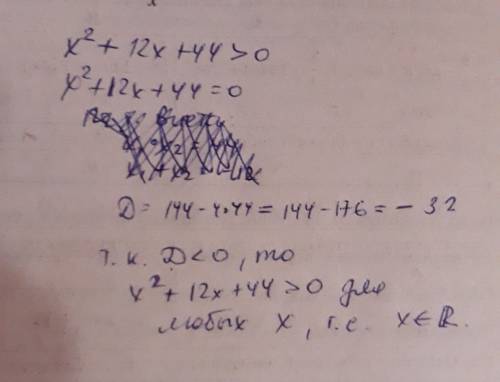 x² + 12x + 44 > 0
x² + 12x + 44 = 0
D = 144 - 4·44 = 144 - 176 = - 32
т.к. D < 0, то
x² + 12x + 44 > 0 для
любых x, т.е. x ∈ ℝ.